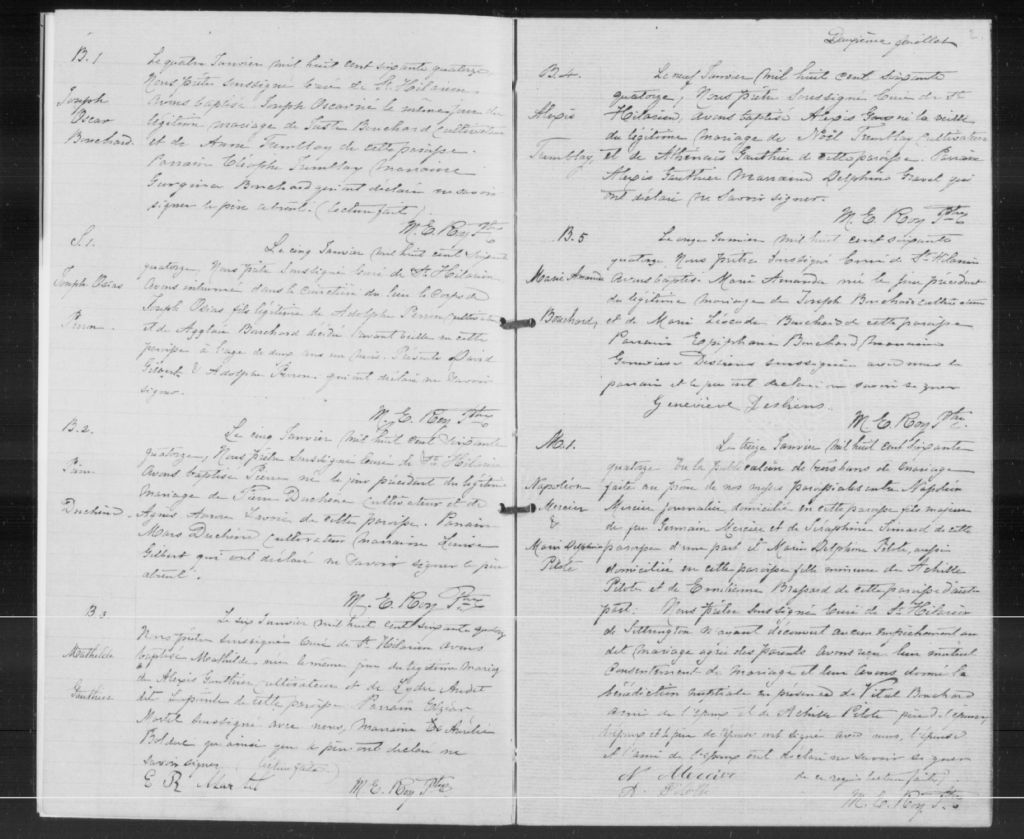 B. 1
Joseph
Oscar
Bouchard.
Le quatre Janvier mil huit cent soixante quatorze,
Nous prêtre soussigné Curé de St Hilarion
avons baptisé Joseph Oscar né le même jour du
légitime mariage de Juste Bouchard cultivateur
et de Anne Tremblay de cette paroisse.
Parrain Tremblay marraine
Georgina Bouchard qui ont déclaré ne savoir
signer le père absent. (lecture faite)
M. E. Roy Ptre
S. 1.
Joseph Osias
Perron.
Le cinq Janvier mil huit cent soixante
quatorze, Nous prêtre soussigné Curé de St Hilarion
avons inhumé dans le cimetière du lieu le corps de
Joseph Osias fils légitime de Adolphe Perron cultivateur
et de Bouchard décédé l'avant veille en cette
paroisse à l'age de deux ans un mois. Présents David
& Adolphe Perron qui ont déclaré ne savoir
signer.
M. E. Roy Ptre
B. 2.
Duchêne.
Le cinq Janvier mil huit cent soixante
quatorze, Nous prêtre soussigné Curé de St Hilarion
avons baptisé Pierre né le jour précédent du légitime
mariage de Pierre Duchêne cultivateur et de
Agnès de cette paroisse. Parrain
Mars Duchêne cultivateur marraine Louise
Gilbert qui ont déclaré ne savoir signer le père
absent.
M. E. Roy Ptre
B. 3
Mathilde
Gauthier
Le six Janvier mil huit cent soixante quatorze
Nous prêtre soussigné Curé de St Hilarion avons
baptisé Mathilde née le même jour du légitime mariage
de Alexis Gauthier cultivateur et de Audet
dit Lapointe de cette paroisse Parrain Elzéar
Martel soussigné avec nous, marraine
Bolduc qui ainsi que le père ont déclaré ne
savoir signer (lecture faite.)
E R Martel
M. E. Roy Ptre
Deuxième feuillet
2.
B. 4.
Alexis
Tremblay
Le neuf Janvier mil huit cent soixante
quatorze, Nous prêtre soussigné Curé de St
Hilarion, avons baptisé Alexis né la veille
du légitime mariage de Noël Tremblay cultivateur
et de Athénaïs Gauthier de cette paroisse. Parrain
Alexis Gauthier Marraine Delphine Gravel qui
ont déclaré ne savoir signer.
M. E. Roy Ptre
B. 5
Marie Amanda
Bouchard,
Le onze Janvier mil huit cent soixante
quatorze Nous prêtre soussigné Curé de St Hilarion
avons baptisé Marie Amanda née le jour précédent
du légitime mariage de Joseph Bouchard cultivateur
et de Marie Bouchard de cette paroisse
Parrain Epiphane Bouchard, marraine
Geneviève Desbiens soussignée avec nous le
parrain et le père ont déclaré ne savoir signer
Geneviève Desbiens.
M. E. Roy Ptre
M. 1.
Napoléon
Mercier
&
Marie Delphine
Pilote
Le treize Janvier mil huit cent soixante
quatorze Vu la publication de trois bans de mariage
faite au prône de nos messes paroissiales entre Napoléon
Mercier journalier domicilié en cette paroisse fils majeur
de feu Germain Mercier et de Séraphine Simard de cette
paroisse d'une part Et Marie Delphine Pilote, aussi
domiciliée en cette paroisse fille mineure de Achille
Pilote et de Emilienne Brassard de cette paroisse d'autre
part: Nous prêtre soussigné Curé de St Hilarion
de Settrington n'ayant découvert aucun empêchement au
dit mariage agréé des parents avons reçu leur mutuel
consentement de mariage et leur avons donné la
bénédiction nuptiale en présence de Vital Bouchard
ami de l'époux et de Achille Pilote père de l'épouse,
l'époux et le père de l'épouse ont signé avec nous, l'épouse
et l'ami de l'époux ont déclaré ne savoir signer
de ce requis lecture faite.
N. Mercier
A. Pilote
M. E. Roy Ptre